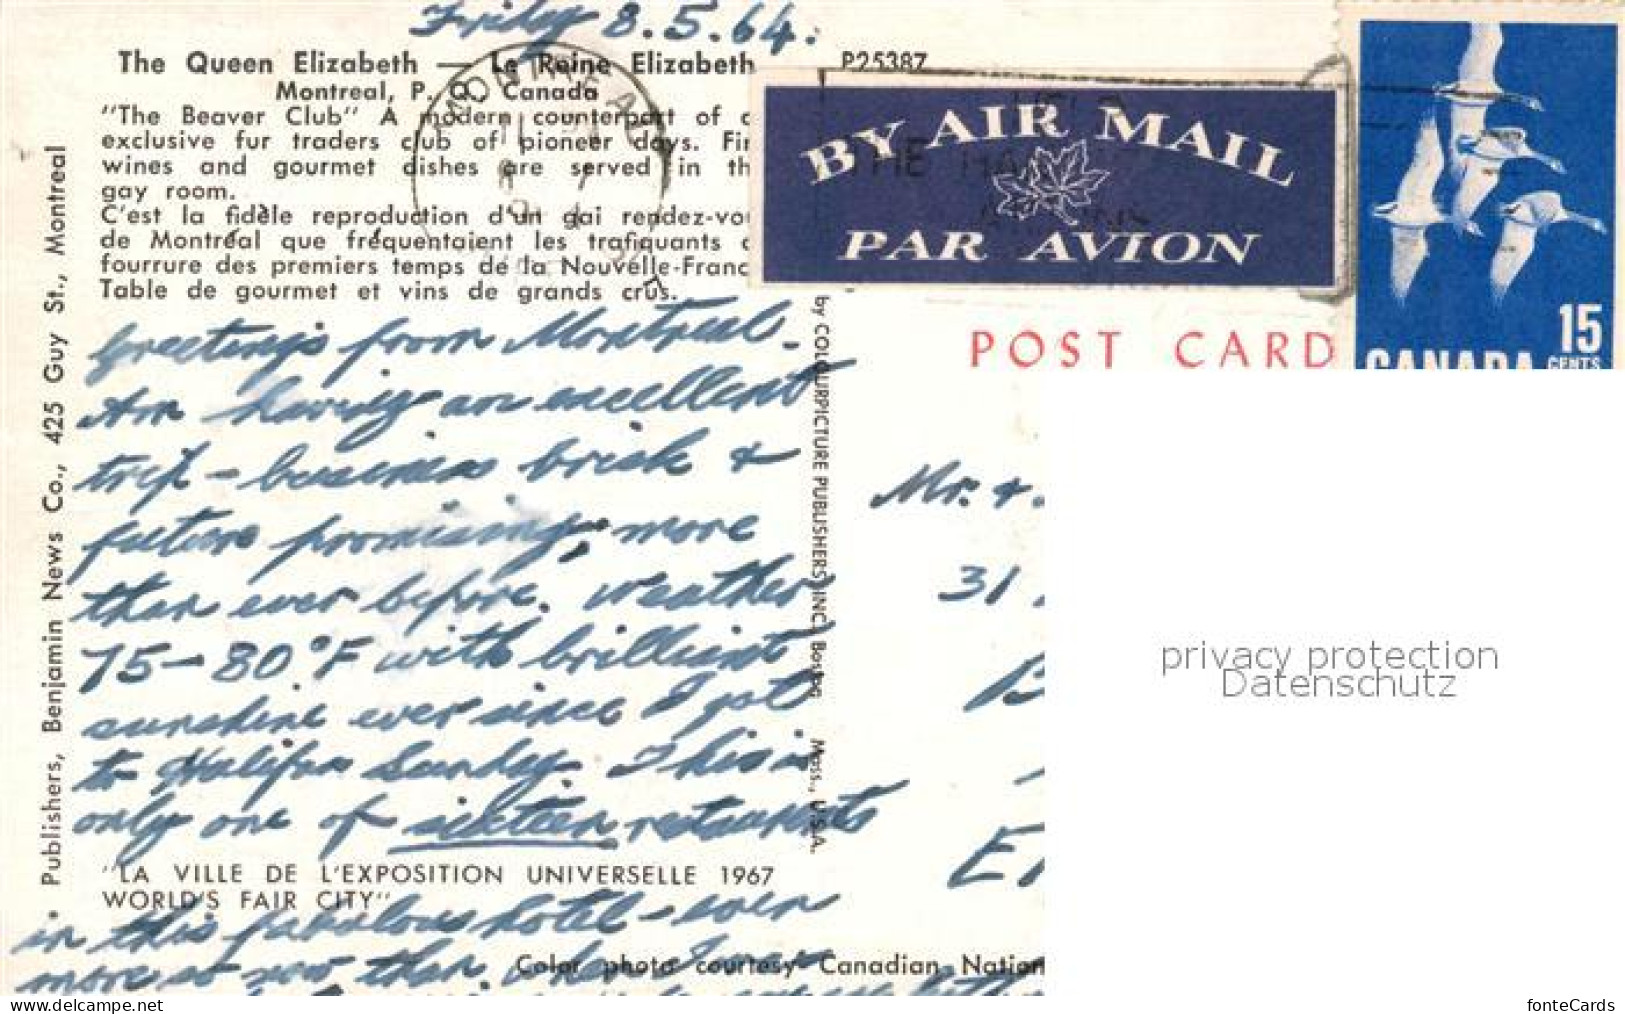 Friday 8.5.64.
The Queen Elizabeth — Le Reine Elizabeth
Montreal, P. Q., Canada
"The Beaver Club" A modern counterpart of
exclusive fur traders club of pioneer days. Fin
wines and gourmet dishes are served in th
gay room.
C'est la fidèle reproduction d'un gai rendez-vou
de Montréal que fréquentaient les trafiquants d
fourrure des premiers temps de la Nouvelle-Franc
Table de gourmet et vins de grands crus.
P25387
MONTREAL
BY AIR MAIL
PAR AVION
15
CENTS
CANADA
POST CARD
Publishers, Benjamin News Co., 425 Guy St., Montreal
by COLOURPICTURE PUBLISHERS INC., Boston Mass., U.S.A.
Greetings from Montreal.
Am having an excellent
trip - business brisk &
future promising, more
than ever before. Weather
75-80°F with brilliant
sunshine ever since I got
to Halifax Sunday. This is
only one of sixteen restaurants
"LA VILLE DE L'EXPOSITION UNIVERSELLE 1967
WORLD'S FAIR CITY"
in this fabulous hotel - even
more so now than when I
Color photo courtesy Canadian Nation
Mr. &
31
B
privacy protection
Datenschutz
www.delcampe.net
fonteCards